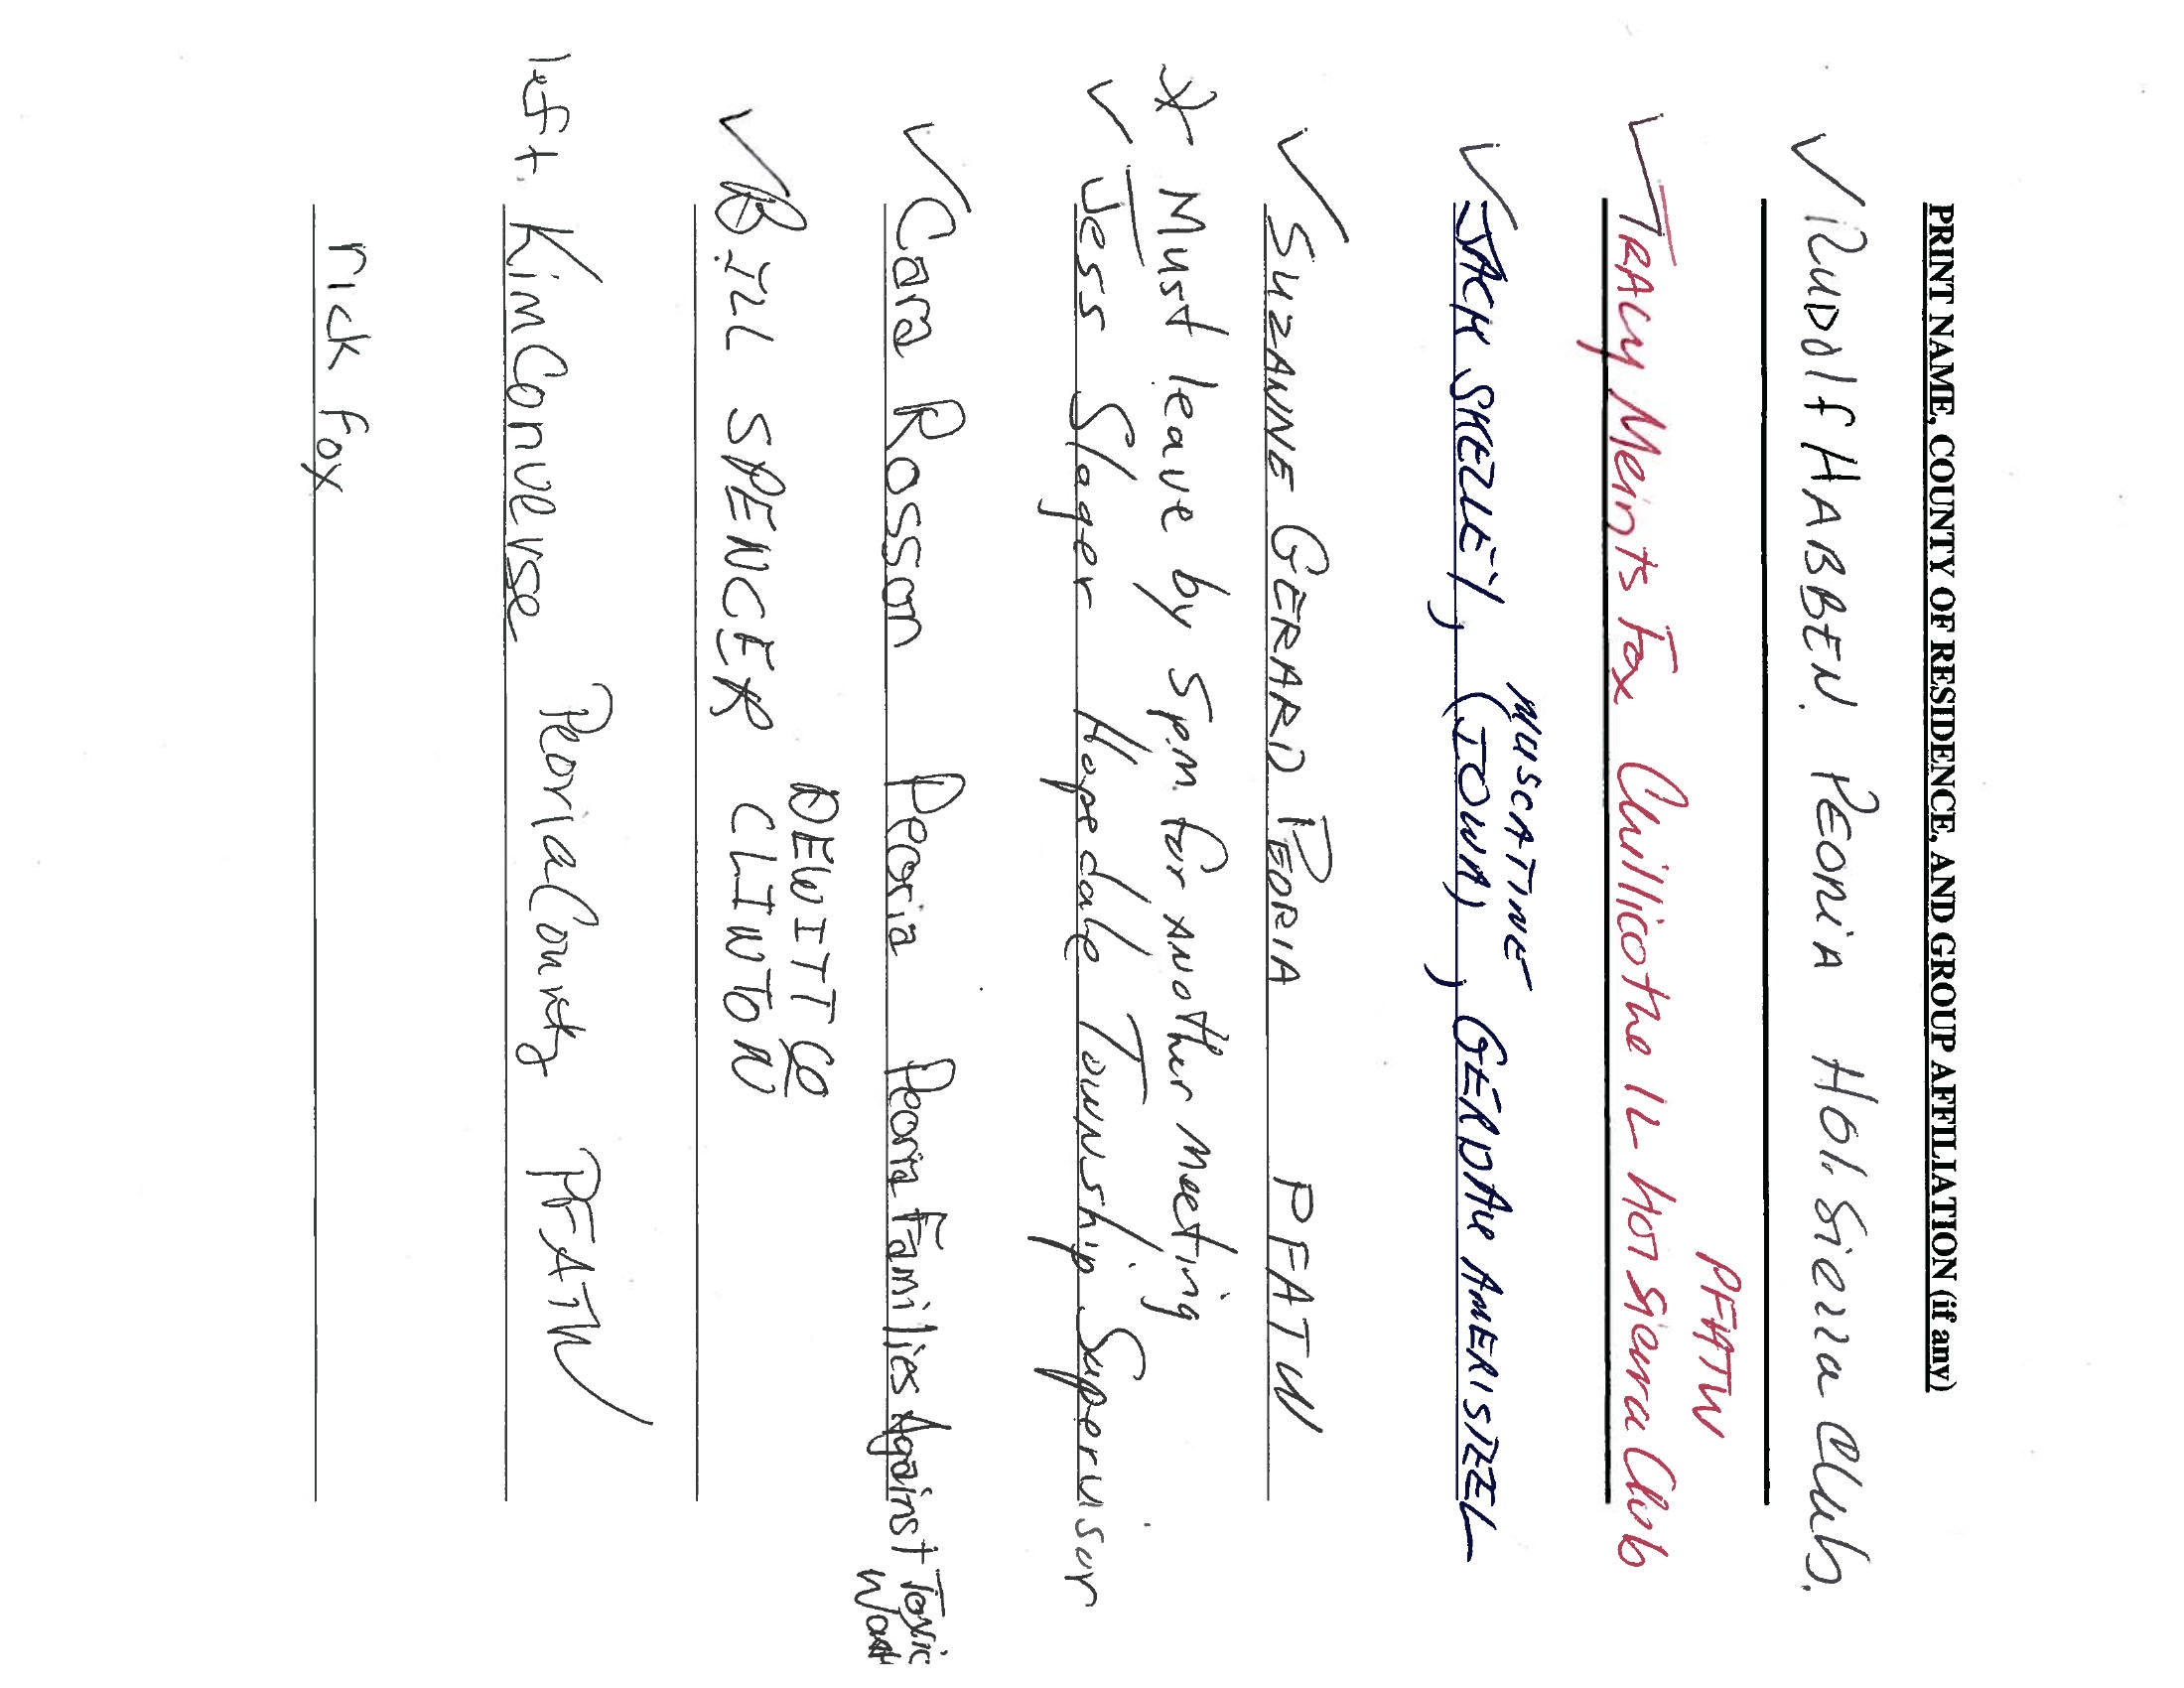 PRINT NAME, COUNTY OF RESIDENCE, AND GROUP AFFILIATION (if any)
✓ Rudolf HABBEN. PEORIA HOI. Sierra Club.
PFATW
✓ TRACY Meints Fox Chillicothe IL HOI Sierra Club
MUSCATINE
✓ JACK SKEZLEY, (IOWA), GERDAU AMERISTEEL
✓ SUZANNE GERARD PEORIA PFATW
* Must leave by 5p.m. for another meeting
✓ Jess Slager Hopedale Township Supervisor
✓ Cara Rosson Peoria Peoria Families Against Toxic
Waste
DEWITT CO
✓ BILL SPENCER CLINTON
left Kim Converse Peoria County PFATW
rick fox